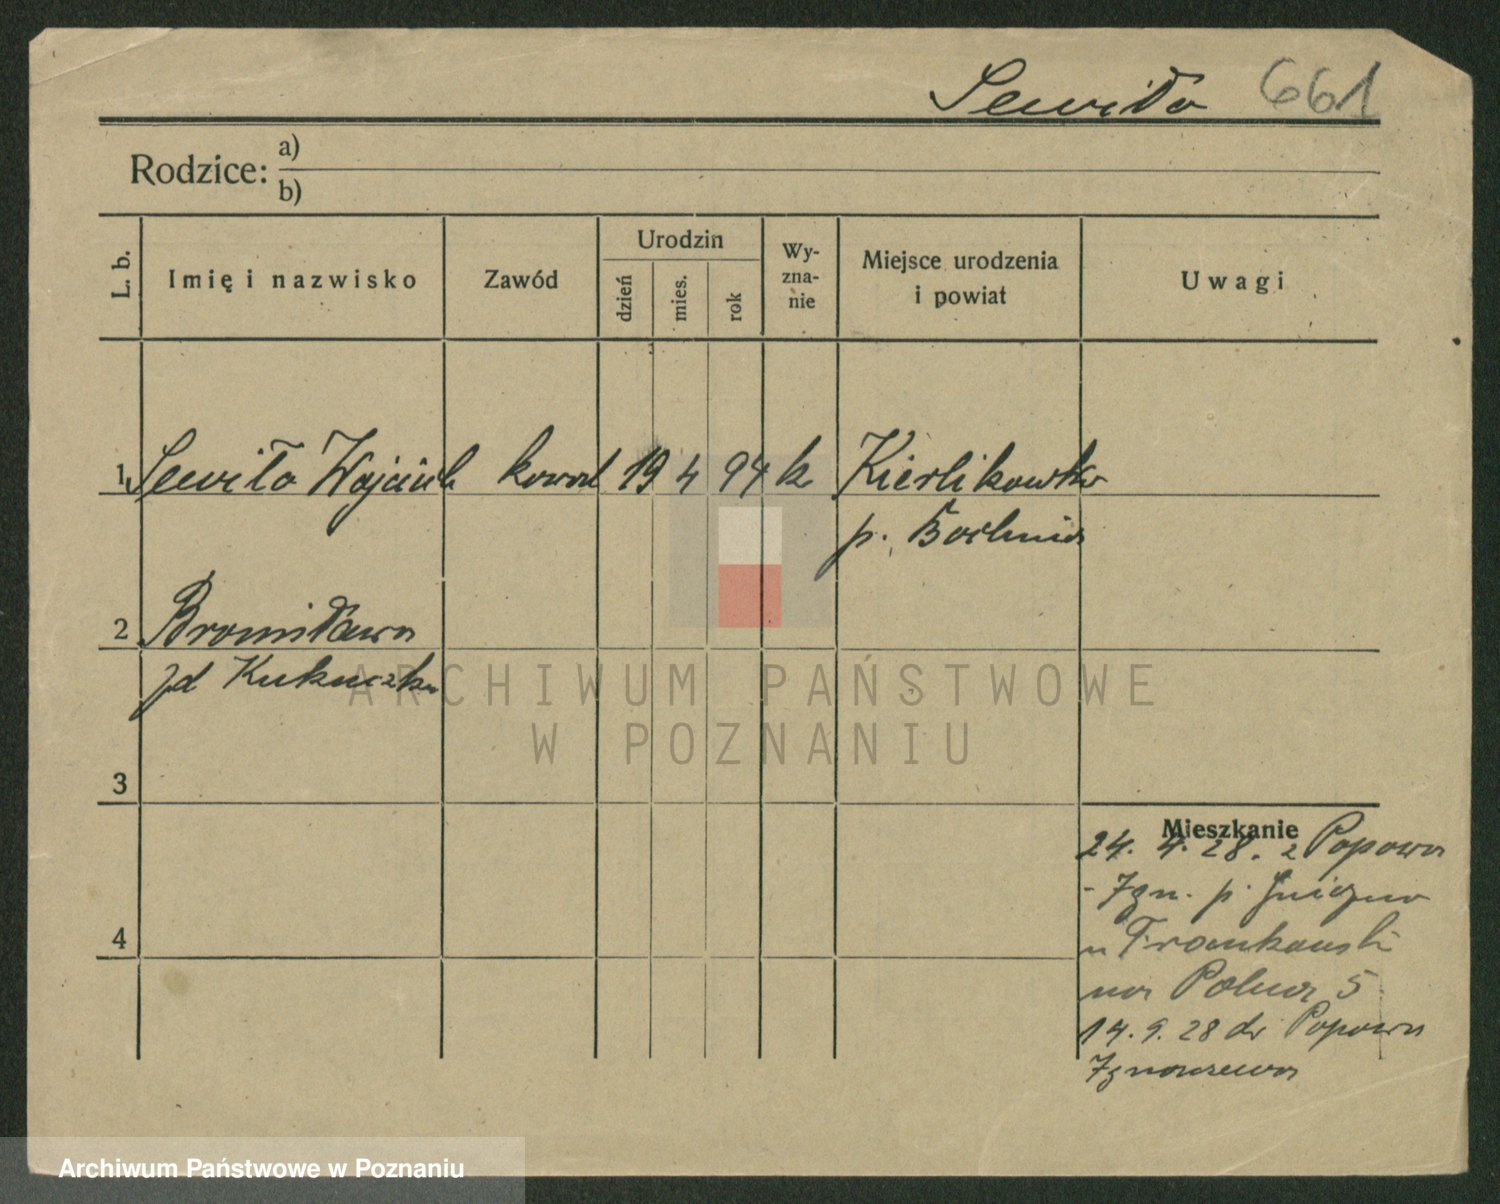 Sewiło 661
Rodzice: a)
b)
L. b.
Imię i nazwisko
Zawód
Urodzin
dzień
mies.
rok
Wy-
zna-
nie
Miejsce urodzenia
i powiat
Uwagi
1 Sewiło Wojciech kowal 19 4 94 k Kierlikowka
p. Bochnia
2 Bronisława
zd Kukuczka
3
4
Mieszkanie
24. 4. 28. z Popowa
- Ign. p. Gniezno
u Frankowski
na Polna 5
14. 9. 28 do Popowa
Ignacewa
ARCHIWUM PAŃSTWOWE
W POZNANIU
Archiwum Państwowe w Poznaniu